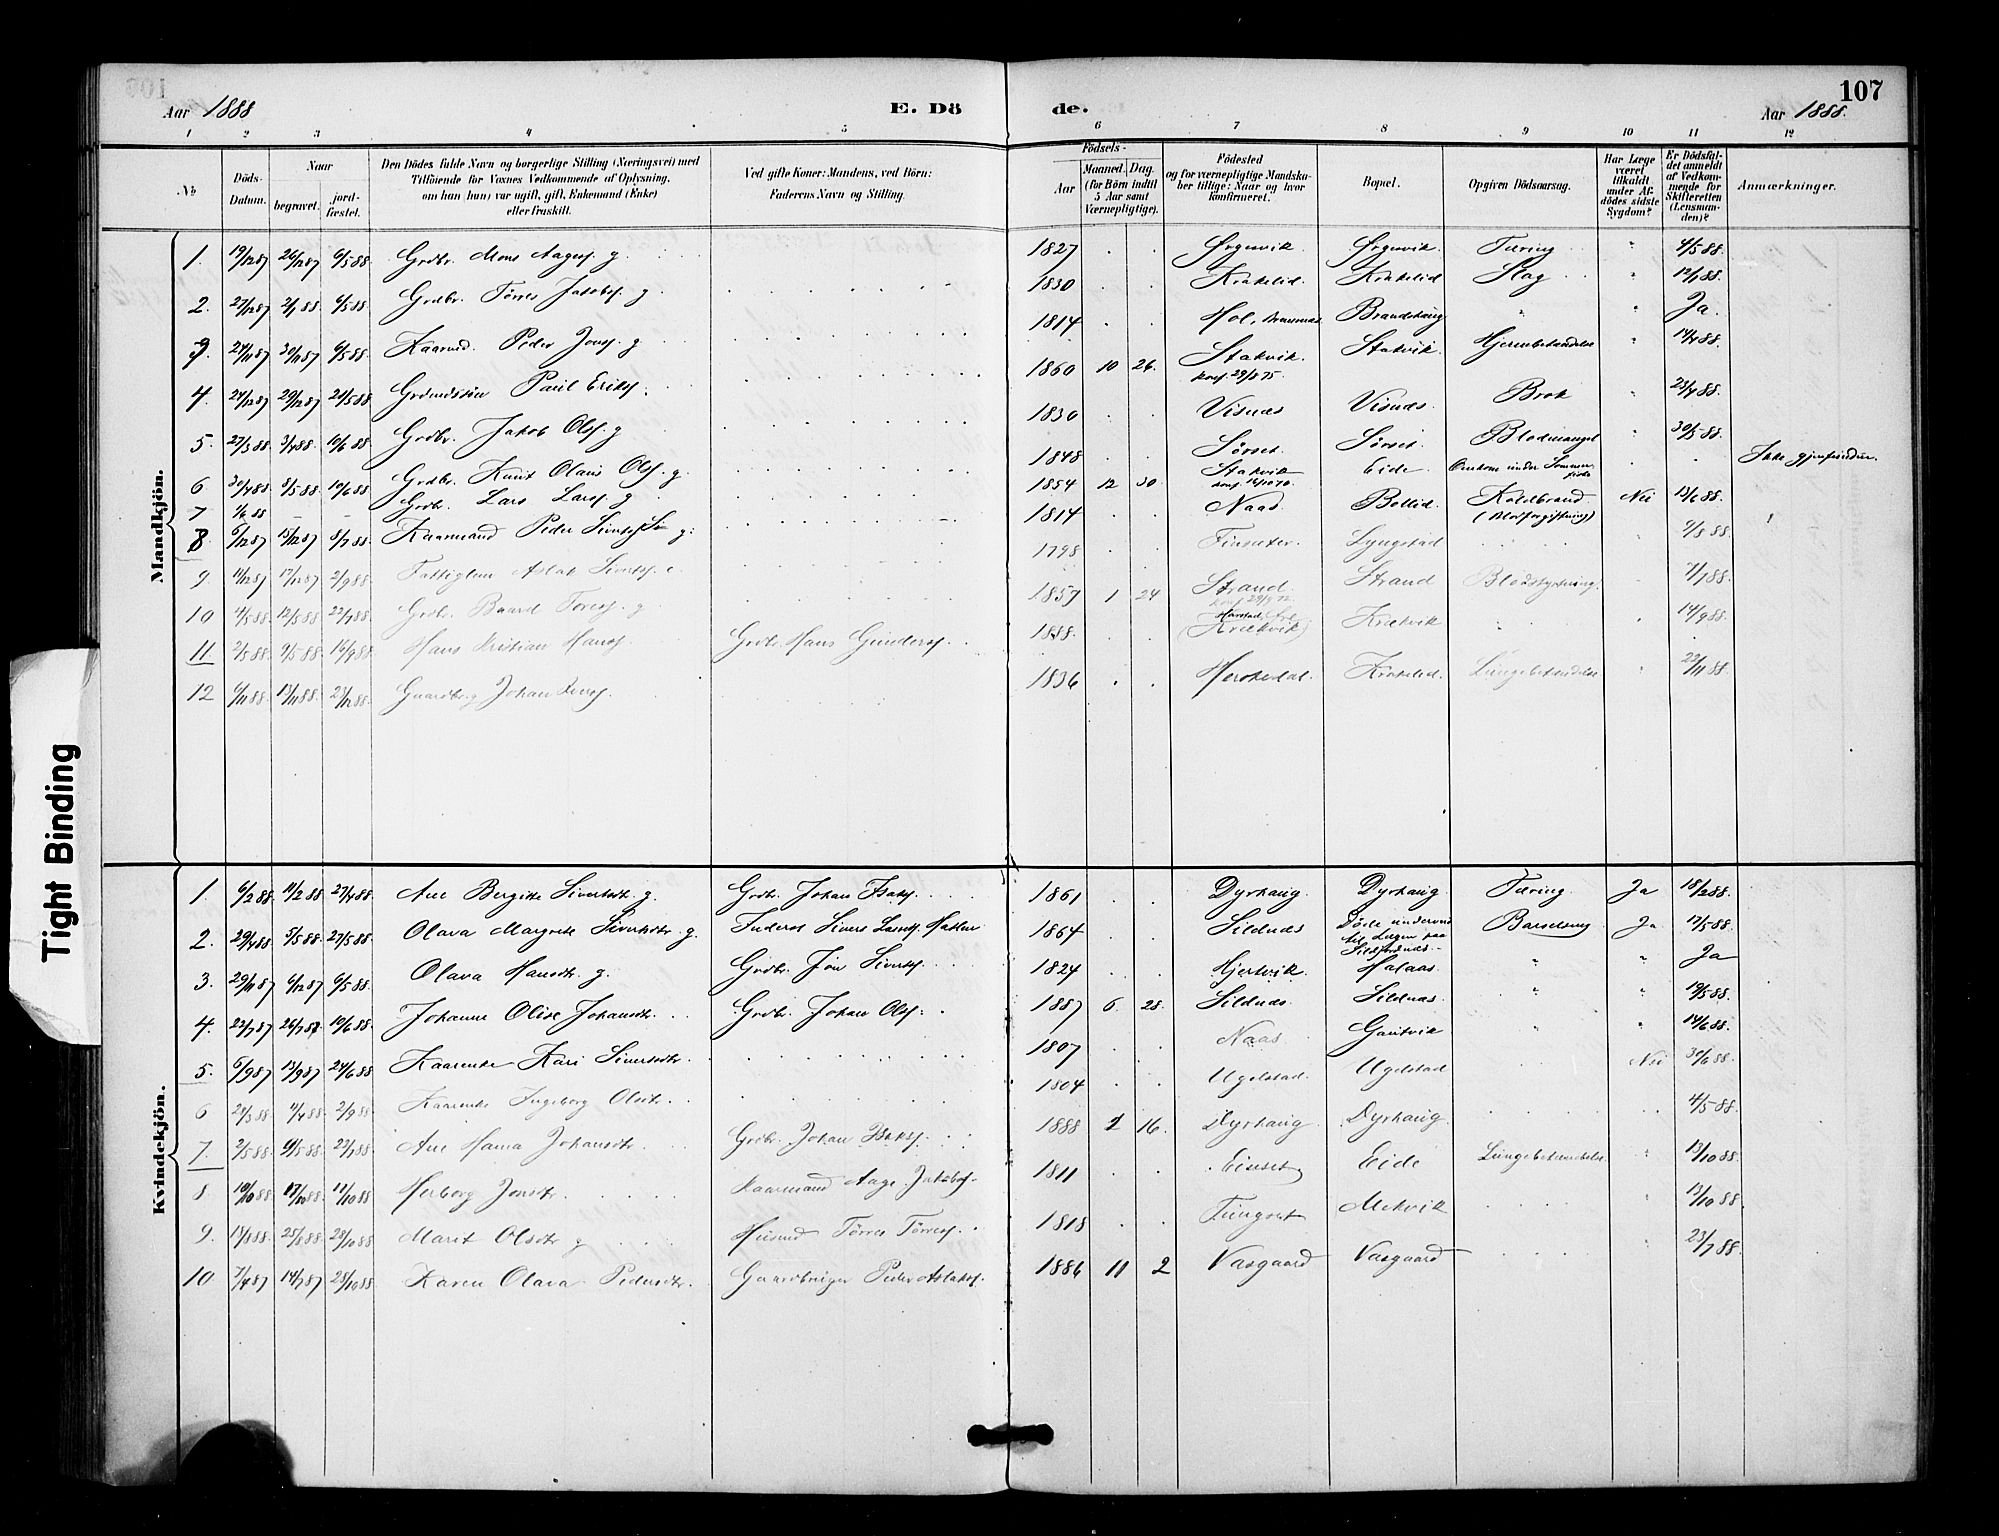 107
Aar 1888
E. Dö
de.
Aar 1888.
1 2 3 4 5 6 7 8 9 10 11 12
No
Döds-Datum.
Naar
begravet.
jord-fæstet.
Den Dödes fulde Navn og borgerlige Stilling (Næringsvei) med
Tilföiende for Voxnes Vedkommende af Oplysning.
om han (hun) var ugift, gift, Enkemand (Enke)
eller fraskilt.
Ved gifte Koner: Mandens, ved Börn:
Faderens Navn og Stilling.
Födsels-
Aar
Maaned. Dag.
(for Börn indtil
5 Aar samt
Værnepligtige).
Födested
og for værnepligtige Mandska-
ber tillige: Naar og hvor
konfirmeret.
Bopæl.
Opgiven Dödsaarsag.
Har Læge
været
tilkaldt
under Af-
dödes sidste
Sygdom?
Er Dödsfal-
det anmeldt
af Vedkom-
mende for
Skifteretten
(Lensman-
den)?
Anmærkninger.
Mandkjön.
1. 19/12 87 26/12 87 6/5 88. Grdbr. Mons Aagess. g. 1827 Ørgenvik. Ørgenvik. Tæring " 4/5 88.
2. 27/12 87 2/1 88 6/5 88. Grdbr. Tørres Jakobss. g. 1830 Krakelid. Krakelid Slag " 12/1 88.
3. 24/11 87 30/11 87 6/5 88. Kaarmd. Peder Jonss. g. 1814 Hol, Brandshaug " " Ja.
4. 24/12 87 29/12 87 20/5 88. Grdmdssøn Paul Erikss. 1860 10 26. Stakvik. konf. 29/8 75. Stakvik. Hjernebetændelse " 14/4 88.
5. 27/3 88 3/4 88 10/6 88. Grdbr. Jakob Olss. g 1830 Visnæs Visnæs. Brok " 23/4 88.
6 30/4 88. 8/5 88. 10/6 88. Grdbr. Knut Olaus Olss. g. 1848 Sørset. Sørset. Blodmangel " 30/5 88.
7 1/6 88 – – Grdbr. Lars Larss. g 1854 12 30. Stakvik Eide. Omkom under Sommer- Ikke gjenfunden.
8 6/12 87 15/12 87 8/7 88. Kaarmand Peder g. 1814 Naas Bollid. Koldbrand (Blodforgiftning) Nei 13/6 88.
9 11/12 87 17/12 87 2/9 88. Fattiglem Aslak Sivertss. e. 1798 Lyngstad 9/8 88
10 4/5 88. 12/5 88 22/7 88. Grdbr. Baard Toress. g 1857 1 24 Strand. Strand Blodstyrtning. 7/7 88.
11. 2/5 88. 9/5 88 16/9 88. Hans Kristian Hanss. Grdbr. Hans Gunderss. 1888. (Krækvik) Krækvik 14/9 88.
12 6/11 88. 13/11 88. 23/12 88. Gaardbr. g Johan 1836 Herskedal. Krakelid. Lungebetændelse 22/11 88.
Kvindekjön.
1. 6/2 88. 11/2 88 27/4 88. Ane Bergitte Sivertsdtr. g. Grdbr. Johan Isakss. 1861 Dyrhaug. Dyrhaug. Tæring. Ja 18/2 88.
2. 29/4 88. 5/5 88. 27/5 88. Olava Margrete Sivertsdtr. g. Inderst Sivert Larss. 1864 Sildnæs Døde underveis til Lægen paa Barselseng Ja. 17/5 88.
3. 29/11 87 6/12 87 6/5 88. Olava Hansdtr. g. Grdbr. Jon Sivertss. 1824 Hjertvik. Halaas. " " Ja
4. 22/7 87 26/7 87 10/6 88. Johanne Olise Johansdtr. Grdbr. Johan Olss. 1887 6. 28. Sildnæs. Sildnæs. " " 19/5 88.
5. 6/9 87 13/9 87 24/6 88. Kaarenke Kari Sivertsdtr. 1807 Naas. Gautvik " 14/6 88.
6 27/3 88. 4/4 88. 2/9 88. Kaarenke Ingeborg Olsdtr. 1804 Ugelstad. Ugelstad Nei 30/6 88.
7. 2/5 88 9/5 88. 22/7 88. Ane Hanna Johansdtr. Grdbr. Johan Isakss. 1888 2 16. Dyrhaug. Dyrhaug. 4/5 88.
8 10/10 88 17/10 88. 11/10 88 Herborg Jonsdtr. Kaarmand Aage Jakobss. 1811 Einset Eide Lungebetændelse " 13/10 88.
9. 18/8 88. 25/8 88. 28/10 88 Marit Olsdtr. g Husmd Tørres Tørress. 1818 Tungset Mekvik 13/10 88.
10 7/4 87 14/7 87 28/10 88 Karen Olava Pedersdtr. Gaardbruger Peder Aslakss. 1886 11 2 Vasgaard Vasgaard 23/7 88.
Tight Binding